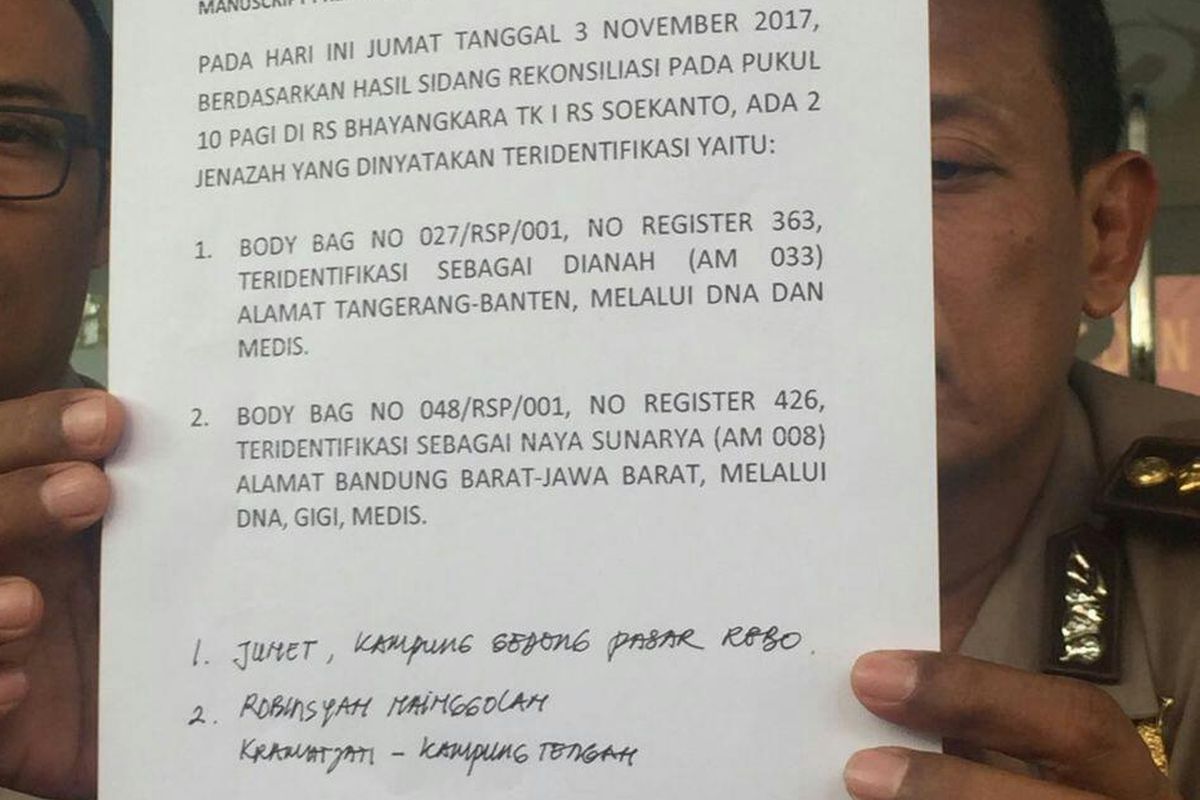 MANUSCRIPT
PADA HARI INI JUMAT TANGGAL 3 NOVEMBER 2017,
BERDASARKAN HASIL SIDANG REKONSILIASI PADA PUKUL
10 PAGI DI RS BHAYANGKARA TK I RS SOEKANTO, ADA 2
JENAZAH YANG DINYATAKAN TERIDENTIFIKASI YAITU:
1. BODY BAG NO 027/RSP/001, NO REGISTER 363,
TERIDENTIFIKASI SEBAGAI DIANAH (AM 033)
ALAMAT TANGERANG-BANTEN, MELALUI DNA DAN
MEDIS.
2. BODY BAG NO 048/RSP/001, NO REGISTER 426,
TERIDENTIFIKASI SEBAGAI NAYA SUNARYA (AM 008)
ALAMAT BANDUNG BARAT-JAWA BARAT, MELALUI
DNA, GIGI, MEDIS.
1. JUMET, KAMPUNG GEDONG PASAR REBO.
2. ROBINSYAH NAINGGOLAH
KRAMATJATI - KAMPUNG TENGAH